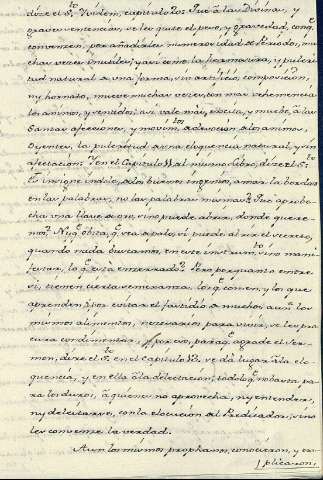 dize el S.to Ybidem, capitulo 20: Que à las Divinas, y
graves sentencias, se les quite el peso, y gravedad, conq.e
convencen, por añadirles numerosidad de Periodos, mu-
chas vezes inutiles; y asi como la hermosura, y pulcri-
tud natural de una forma, sin artificios, composicion,
ny hornato, mueve muchas vezes, con mas vehemencia
los animos, y sentidos; asi vale mas, excita, y mueve, à las
Santas afecciones, y movim.tos de devocion à los animos,
Oyentes, la pulcritud de una eloquencia natural, y sin
afectacion. Y en el Capitulo 11 del mismo libro, dize el S.to
Es insigne indole, de los buenos ingenios, amar la bondad
en las palabras, no las palabras mismas. Que aprobe-
cha una llave de oro, sino puede abrir, donde quere-
mos? Ni q.e obsta, q.e sea de palo, si puede abrir el secreto,
quando nada buscamos, en este instrum.to, sino mani-
festar, lo q.e está encerrado? Pero porquanto entre
si, tienen cierta semejanza los q.e comen, y los que
aprenden; por evitar el fastidio de muchos, aun los
mismos alimentos, necesarios para vivir, se les pro-
cura condimentar, por eso, paraq.e agrade el ser-
mon, dize el S.to en el capitulo 13, se dà lugar à la elo-
quencia, y en ella à la delectacion; todo lo q.e no basta, pa-
ra los duros, à quienes no aprovecha, ny entender,
ny deleitarse, con la elocucion del Predicador, sino
les convenze la verdad.
Aun los mismos prophanos, conocieron, y ex-
plicaron,